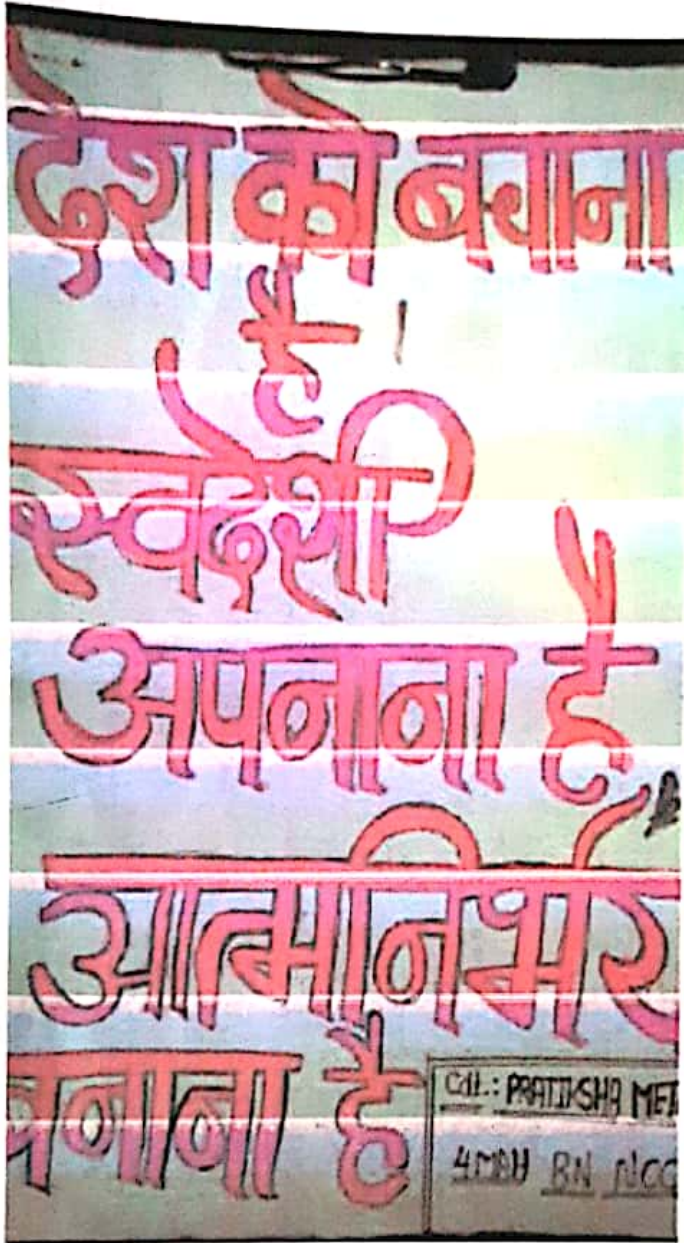 देश को बचाना
है ।
स्वदेशी
अपनाना है,
आत्मनिर्भर
बनाना है
Cdt.: PRATIKSHA
BN NCC